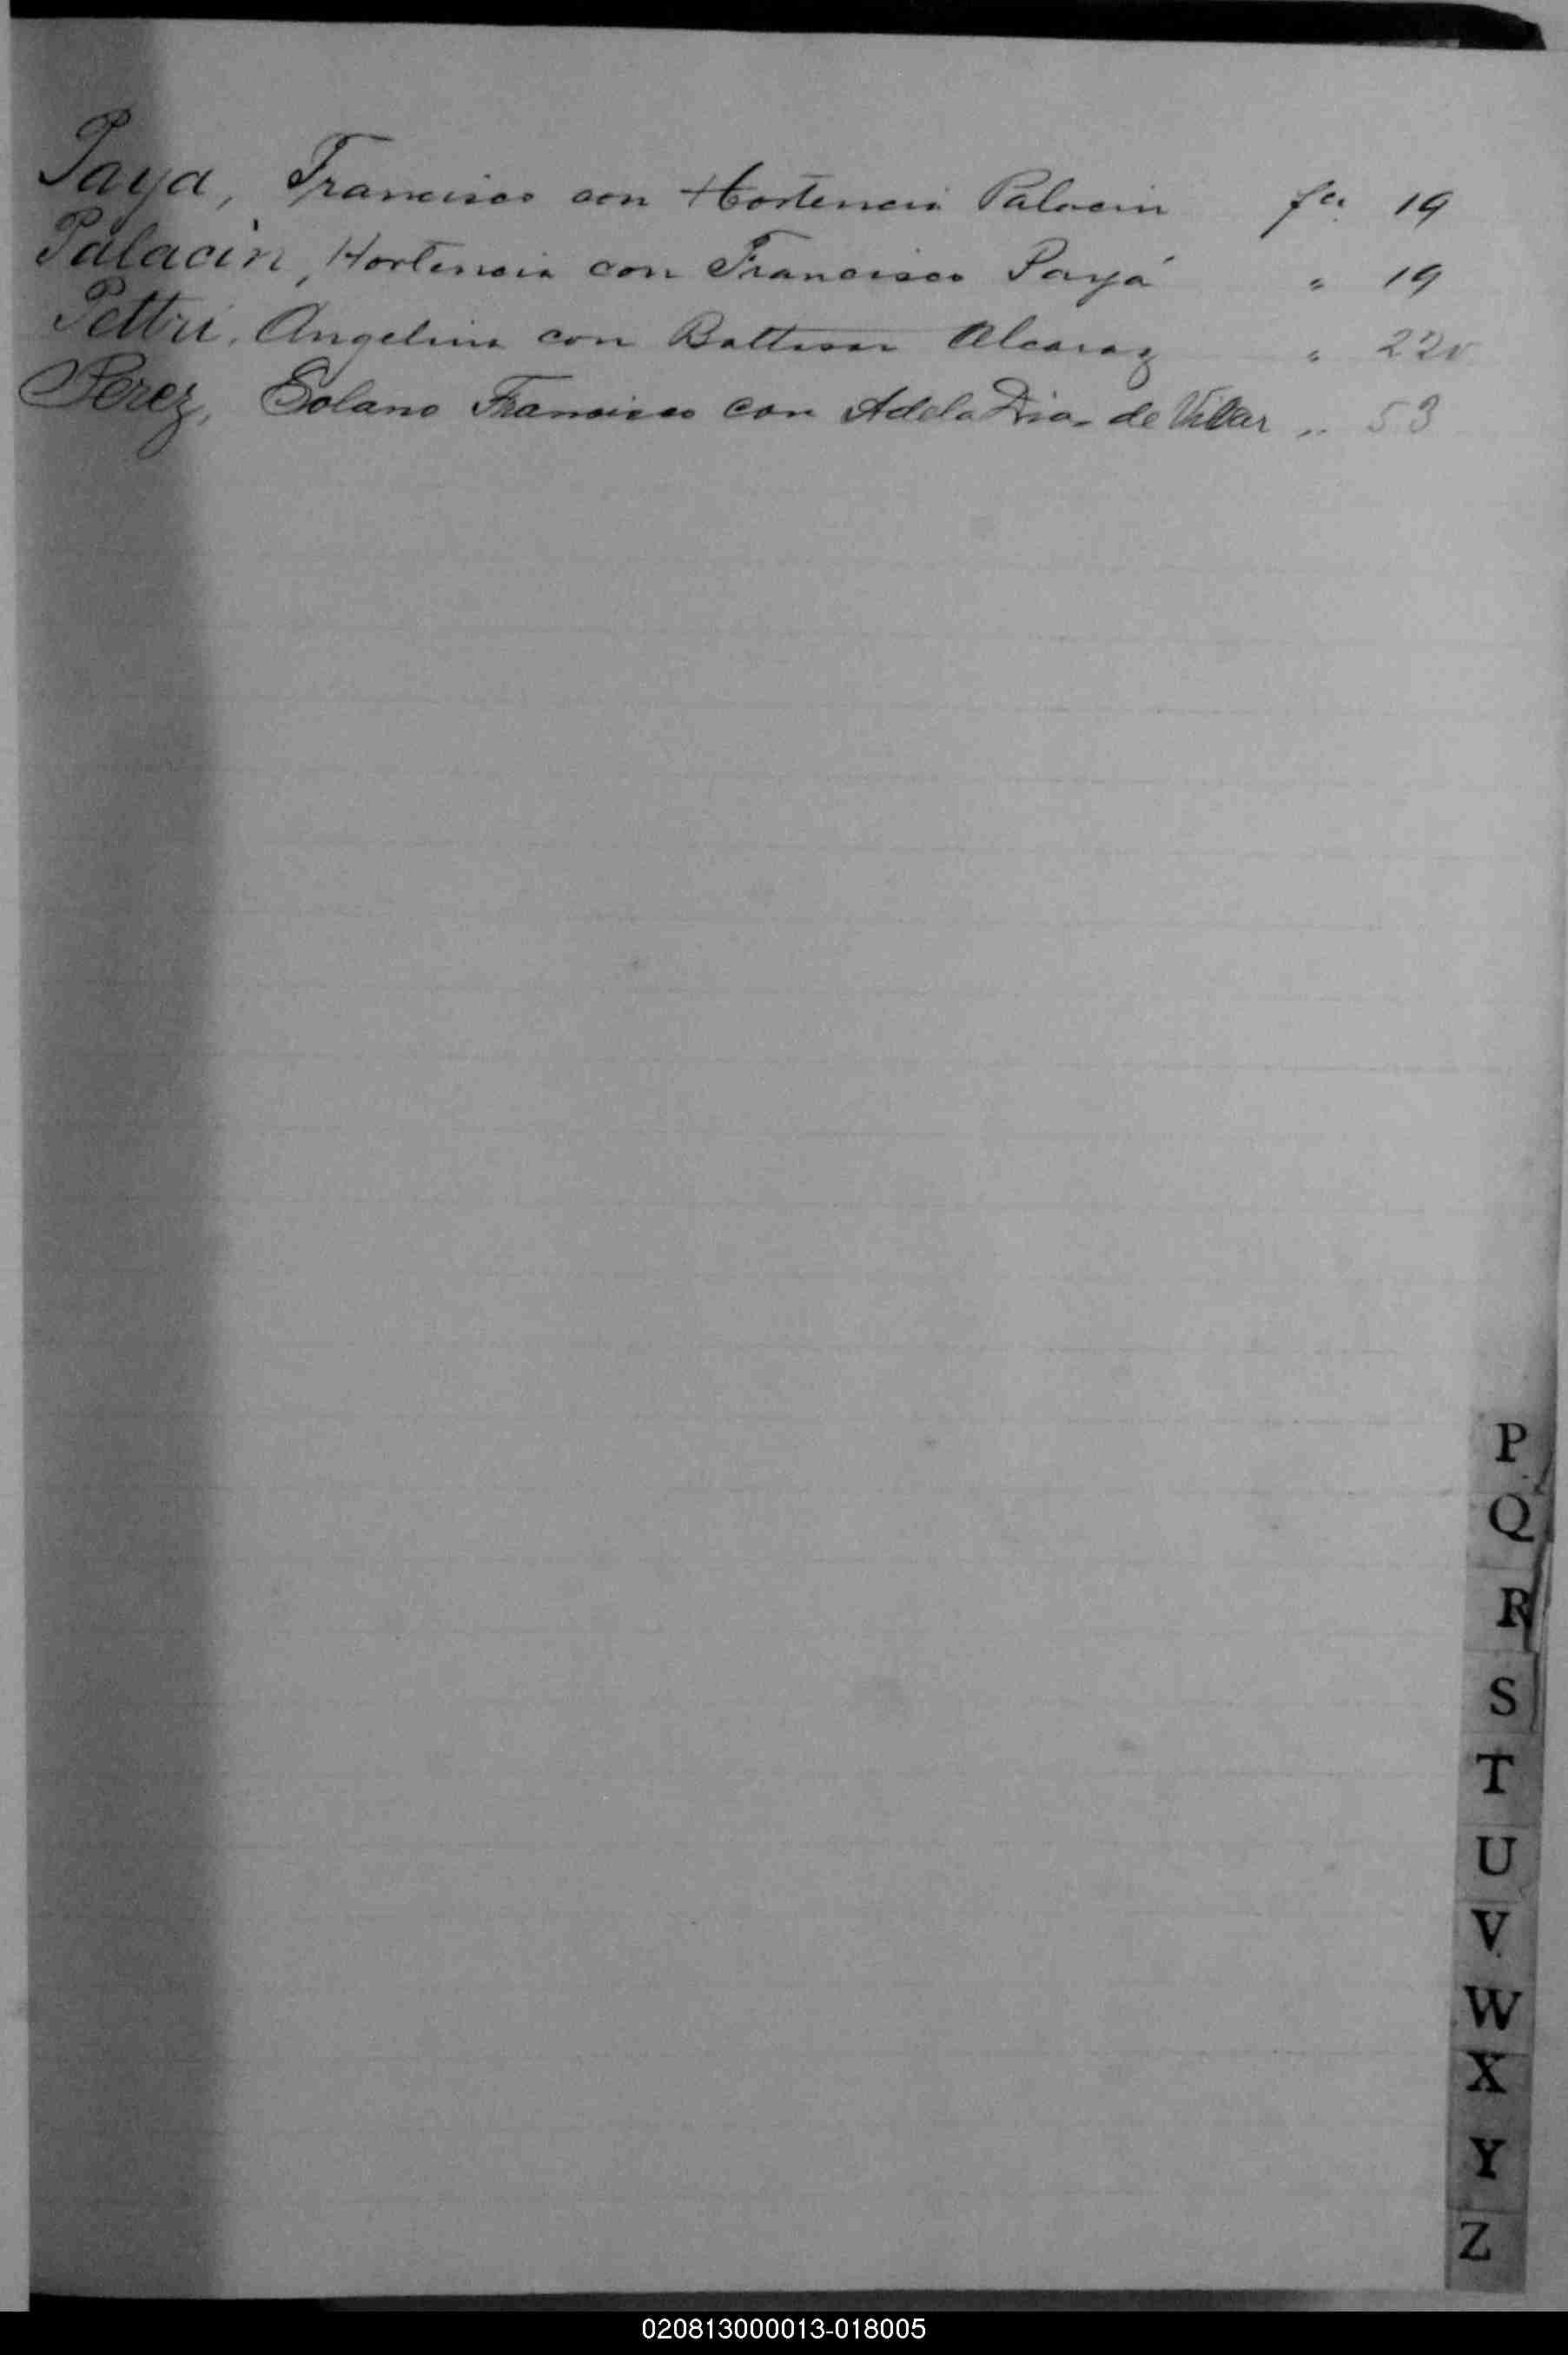 Paya, Francisco con Hortencia Palacin fca. 19
Palacin, Hortencia con Francisco Payá " 19
Pettri, Angelina con Baltasar Alcaraz "
Perez, Solano Francisco con Adela Dia- de Villar " 53
P
Q
R
S
T
U
V
W
X
Y
Z
020813000013-018005